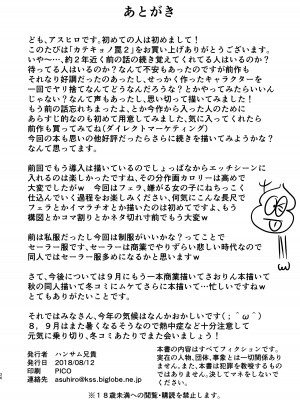 あとがき
ども、アスヒロです、初めての人は初めまして！
このたびは「カテキョノ罠2」をお買い上げありがとうございます。
いや～…、約２年近く前の話の続き覚えてくれてる人はいるのか？
待ってる人はいるのか？なんて不安もあったのですが前作も
それなり好調だったのもあったし、せっかく作ったキャラクターを
一回でヤリ捨てなんてどうなんだろうな？とかやってみたらいいん
じゃない？なんて声もあったし、思い切って描いてみました！
もう前の話忘れちまったよ、とか今作から入った人のために
あらすじ的なのも初めて用意してみました、気に入ってくれたら
前作も買ってみてね(ダイレクトマーケティング）
今回の本も思いの他好評だったらさらに続きを描いてみようかな？
なんて思ってます。
前回でもう導入は描いているのでしょっぱなからエッチシーンに
入れるのは楽しかったですね、その分作画カロリーは高めで
大変でしたがｗ　今回はフェラ、嫌がる女の子にねちっこく
仕込んでいく過程をお楽しみください、何気にこんな長尺で
フェラとかイラマチオとか描いたのは初めてですよ、もう
構図とかコマ割りとかネタ切れ寸前でもう大変ｗ
前は私服だったし今回は制服がいいかな？ってことで
セーラー服です、セーラーは商業でやりずらい悲しい時代なので
同人ではセーラー服多めになるかと思いますｗ
さて、今後については９月にもう一本商業描いてさおりん本描いて
秋の同人描いて冬コミにムケてさらに本描いて…忙しいですねｗ
とてもありがたいことです。
それではみなさん、今年の気候はなんかおかしいです(；＾ω＾)
８，９月はまた暑くなるそうなので熱中症など十分注意して
元気に乗り切り、冬コミあたりでまた会いましょう！
発行者　ハンサム兄貴
発行日　2018/08/12
印刷　PICO
連絡先　asuhiro@kss.biglobe.ne.jp
本書の内容はすべてフィクションです。
実在の人物、団体、事象とは一切関係あり
ません。また、本書は犯罪を教唆するもの
ではありません。決してマネをしないで
ください。
※１８歳未満への閲覧・購読を禁止します。